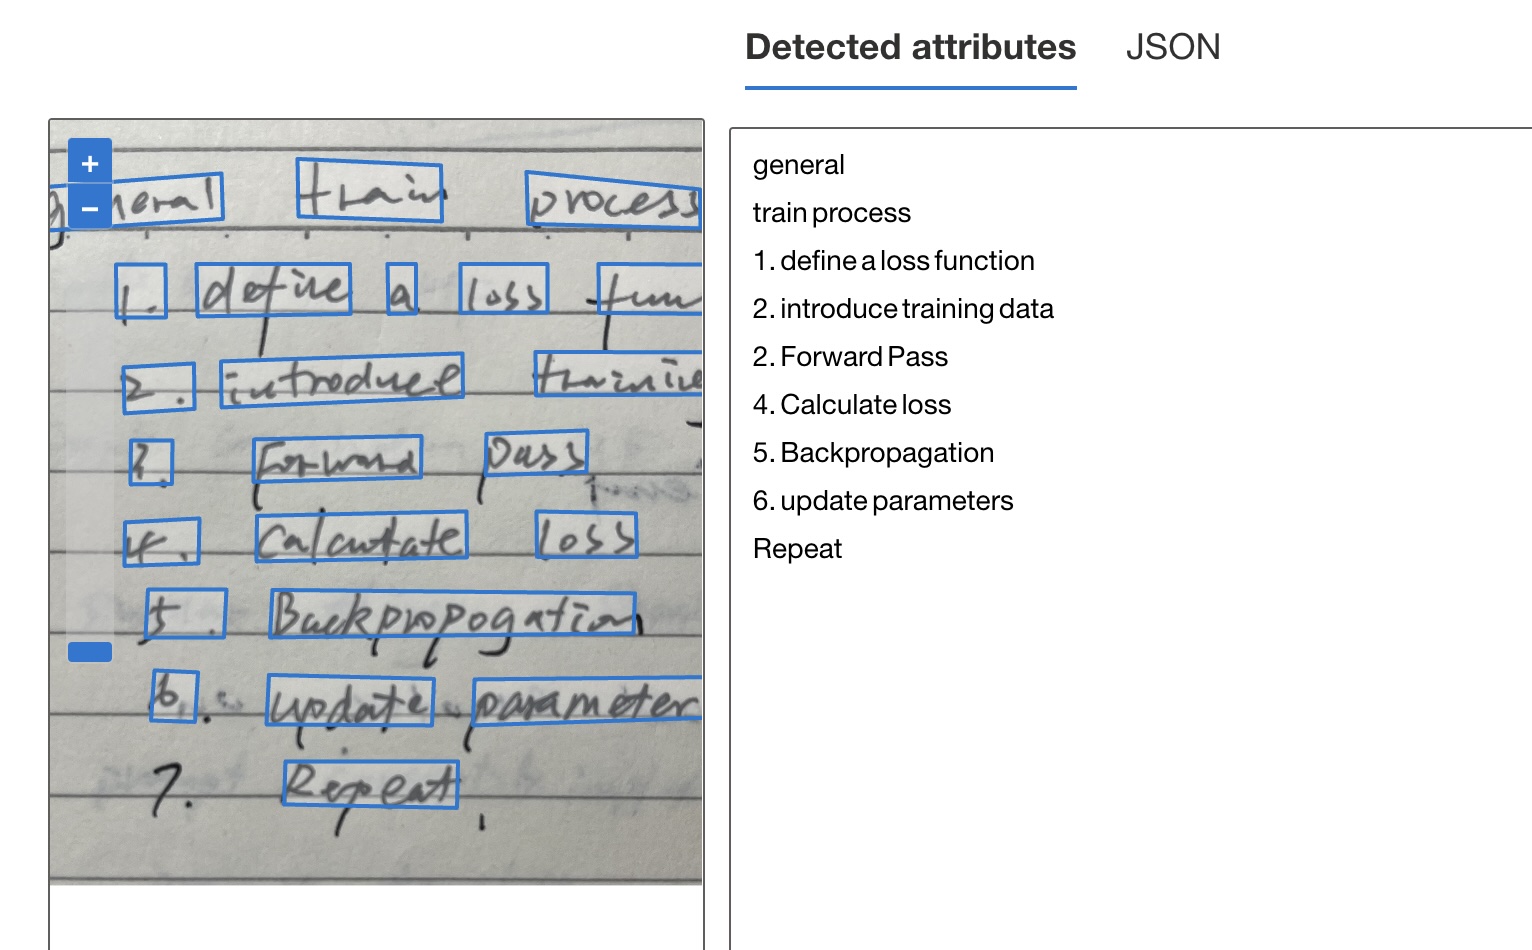 Detected attributes JSON
+
−
general train process
1. define a loss fun
2. introduce trainin
3. Forward Pass
4. Calculate loss
5. Backpropogation
6. update parameter
7. Repeat
general
train process
1. define a loss function
2. introduce training data
2. Forward Pass
4. Calculate loss
5. Backpropagation
6. update parameters
Repeat